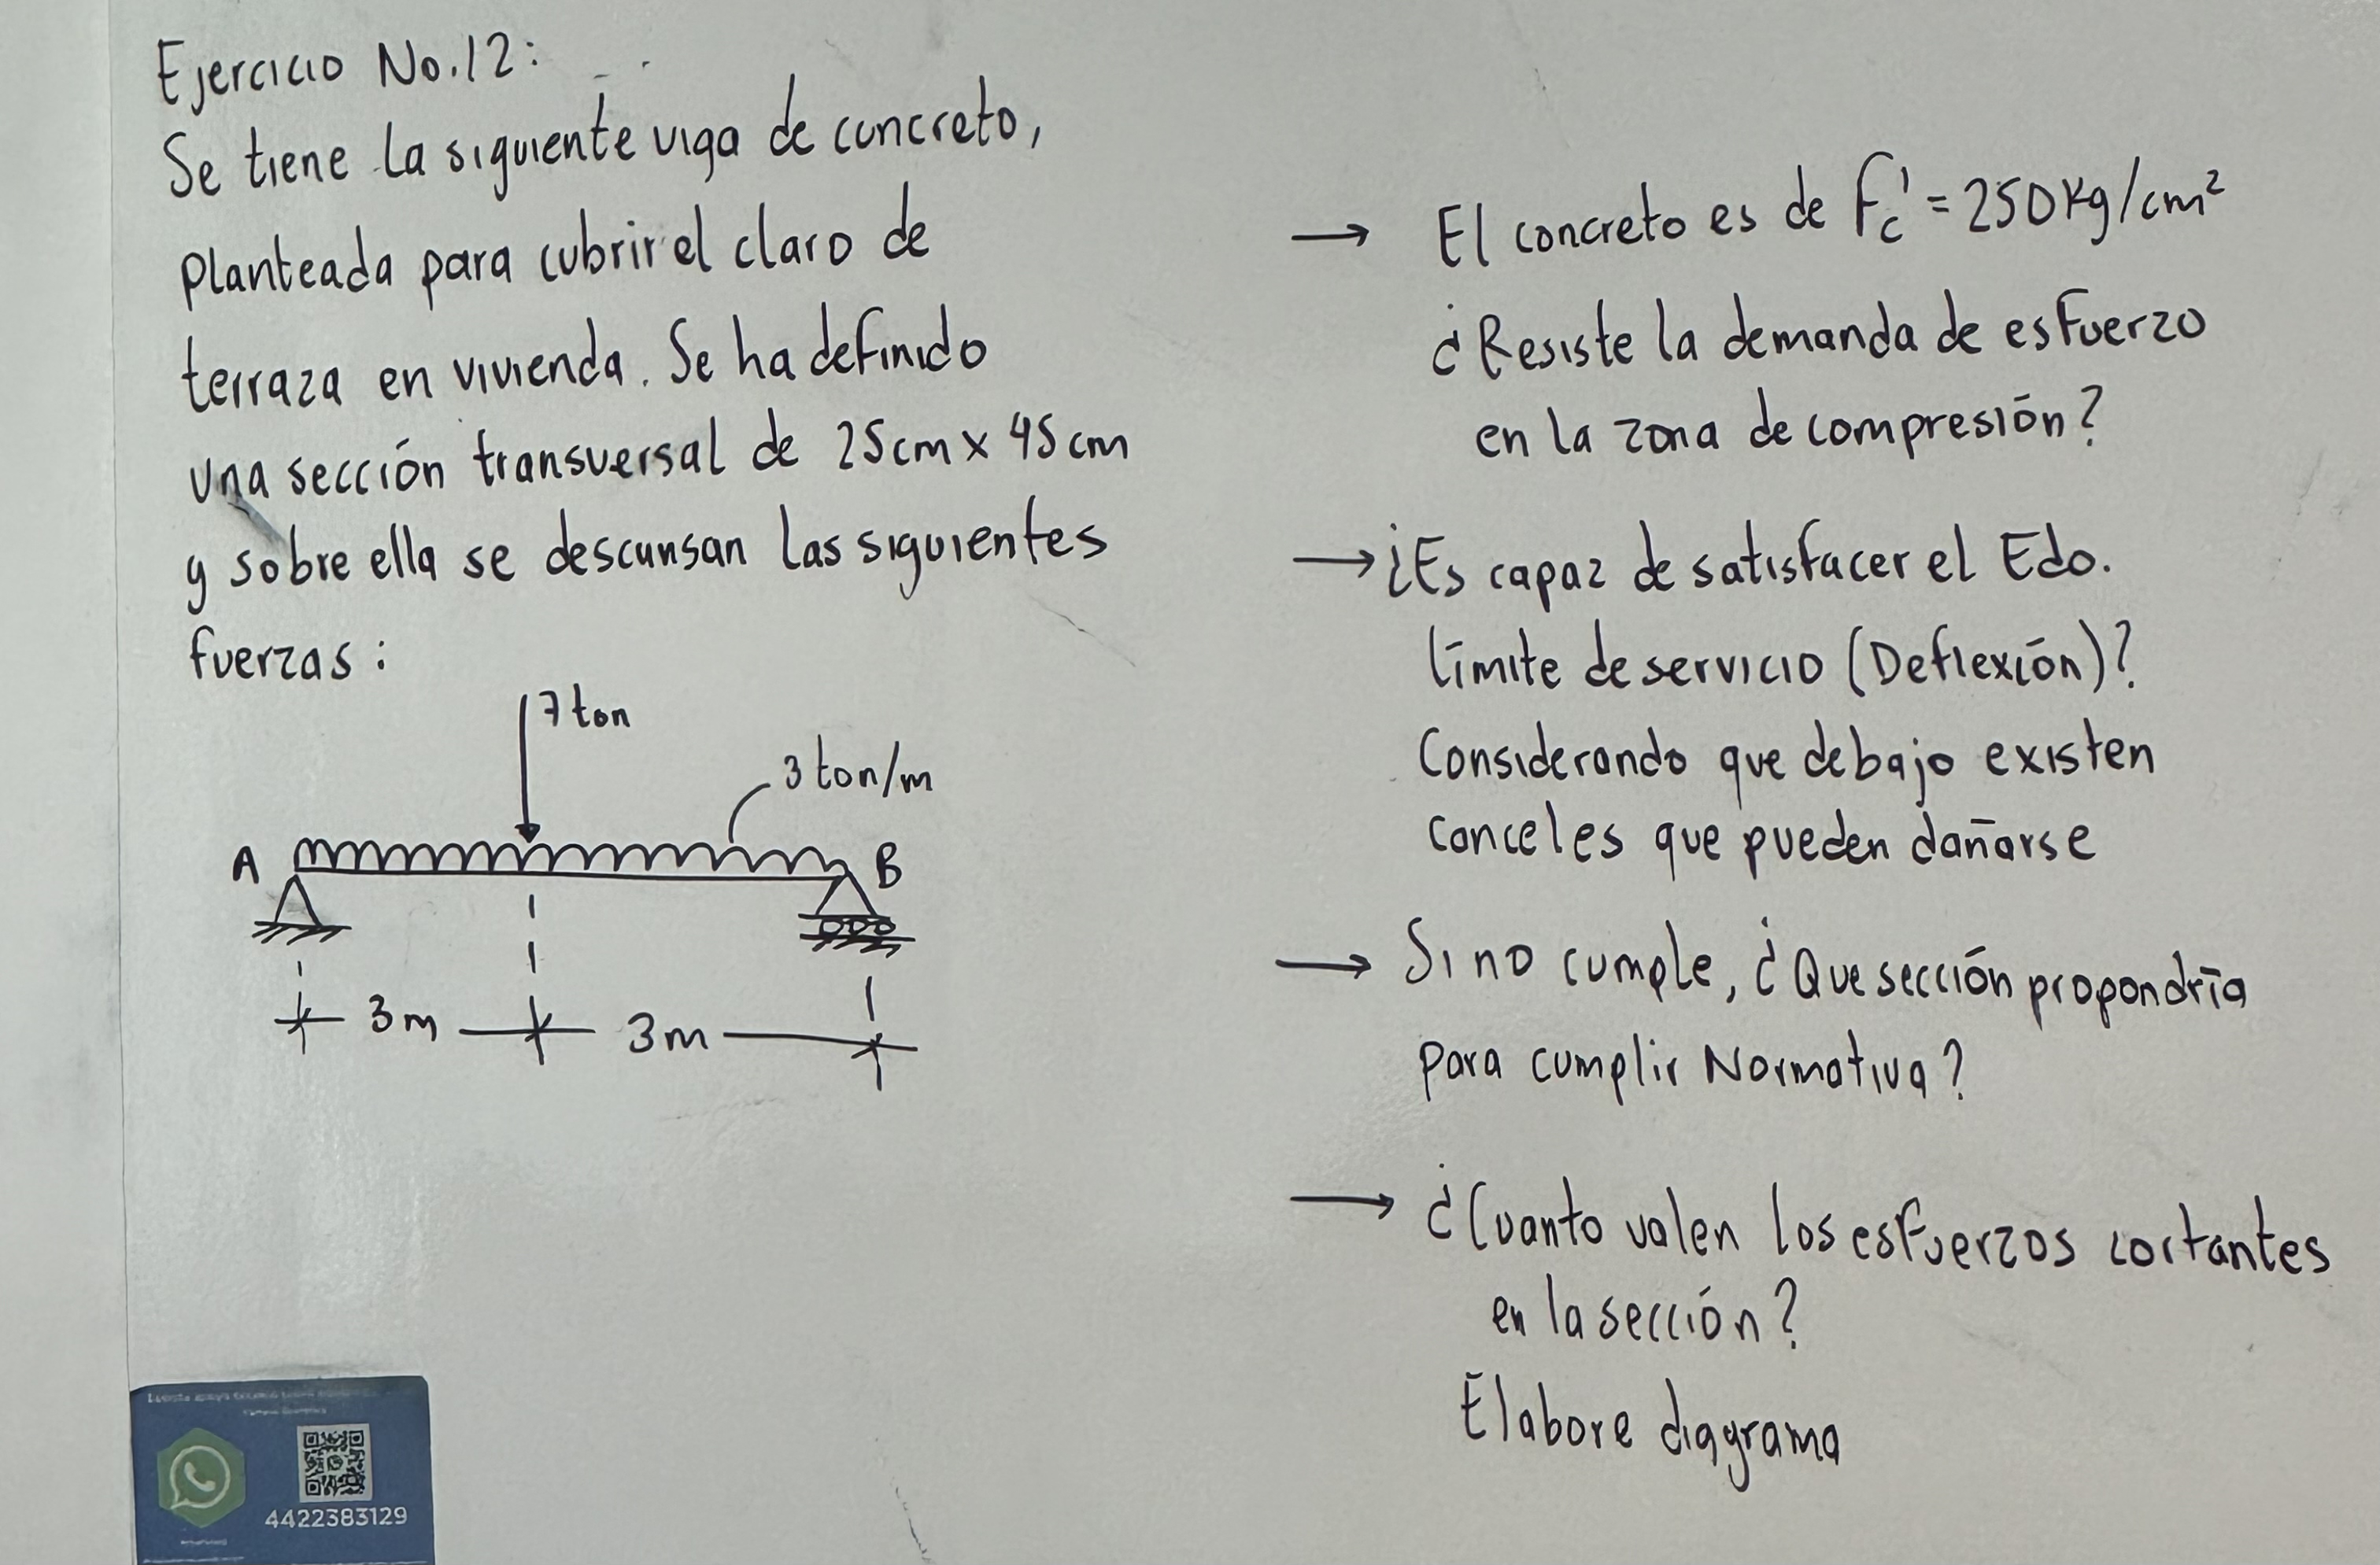 Ejercicio No.12:
Se tiene la siguiente viga de concreto,
planteada para cubrir el claro de
terraza en vivienda. Se ha definido
una sección transversal de 25cm x 45cm
y sobre ella se descansan las siguientes
fuerzas:
7 ton
3 ton/m
A
B
3m
3m
→ El concreto es de f'c = 250 Kg/cm²
¿Resiste la demanda de esfuerzo
en la zona de compresión?
→ ¿Es capaz de satisfacer el Edo.
límite de servicio (Deflexión)?
Considerando que debajo existen
canceles que pueden dañarse
→ Si no cumple, ¿Que sección propondría
para cumplir Normativa?
→ ¿Cuanto valen los esfuerzos cortantes
en la sección?
Elabore diagrama
4422383129